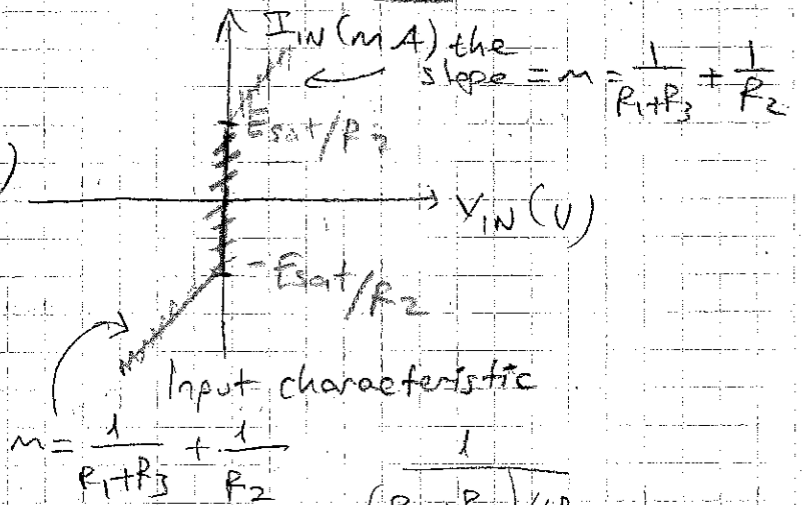 I_IN (mA) the
slope = m = 1/(R1+R3) + 1/R2
Esat/R2
)
V_IN (V)
-Esat/R2
Input characteristic
m = 1/(R1+R3) + 1/R2
1